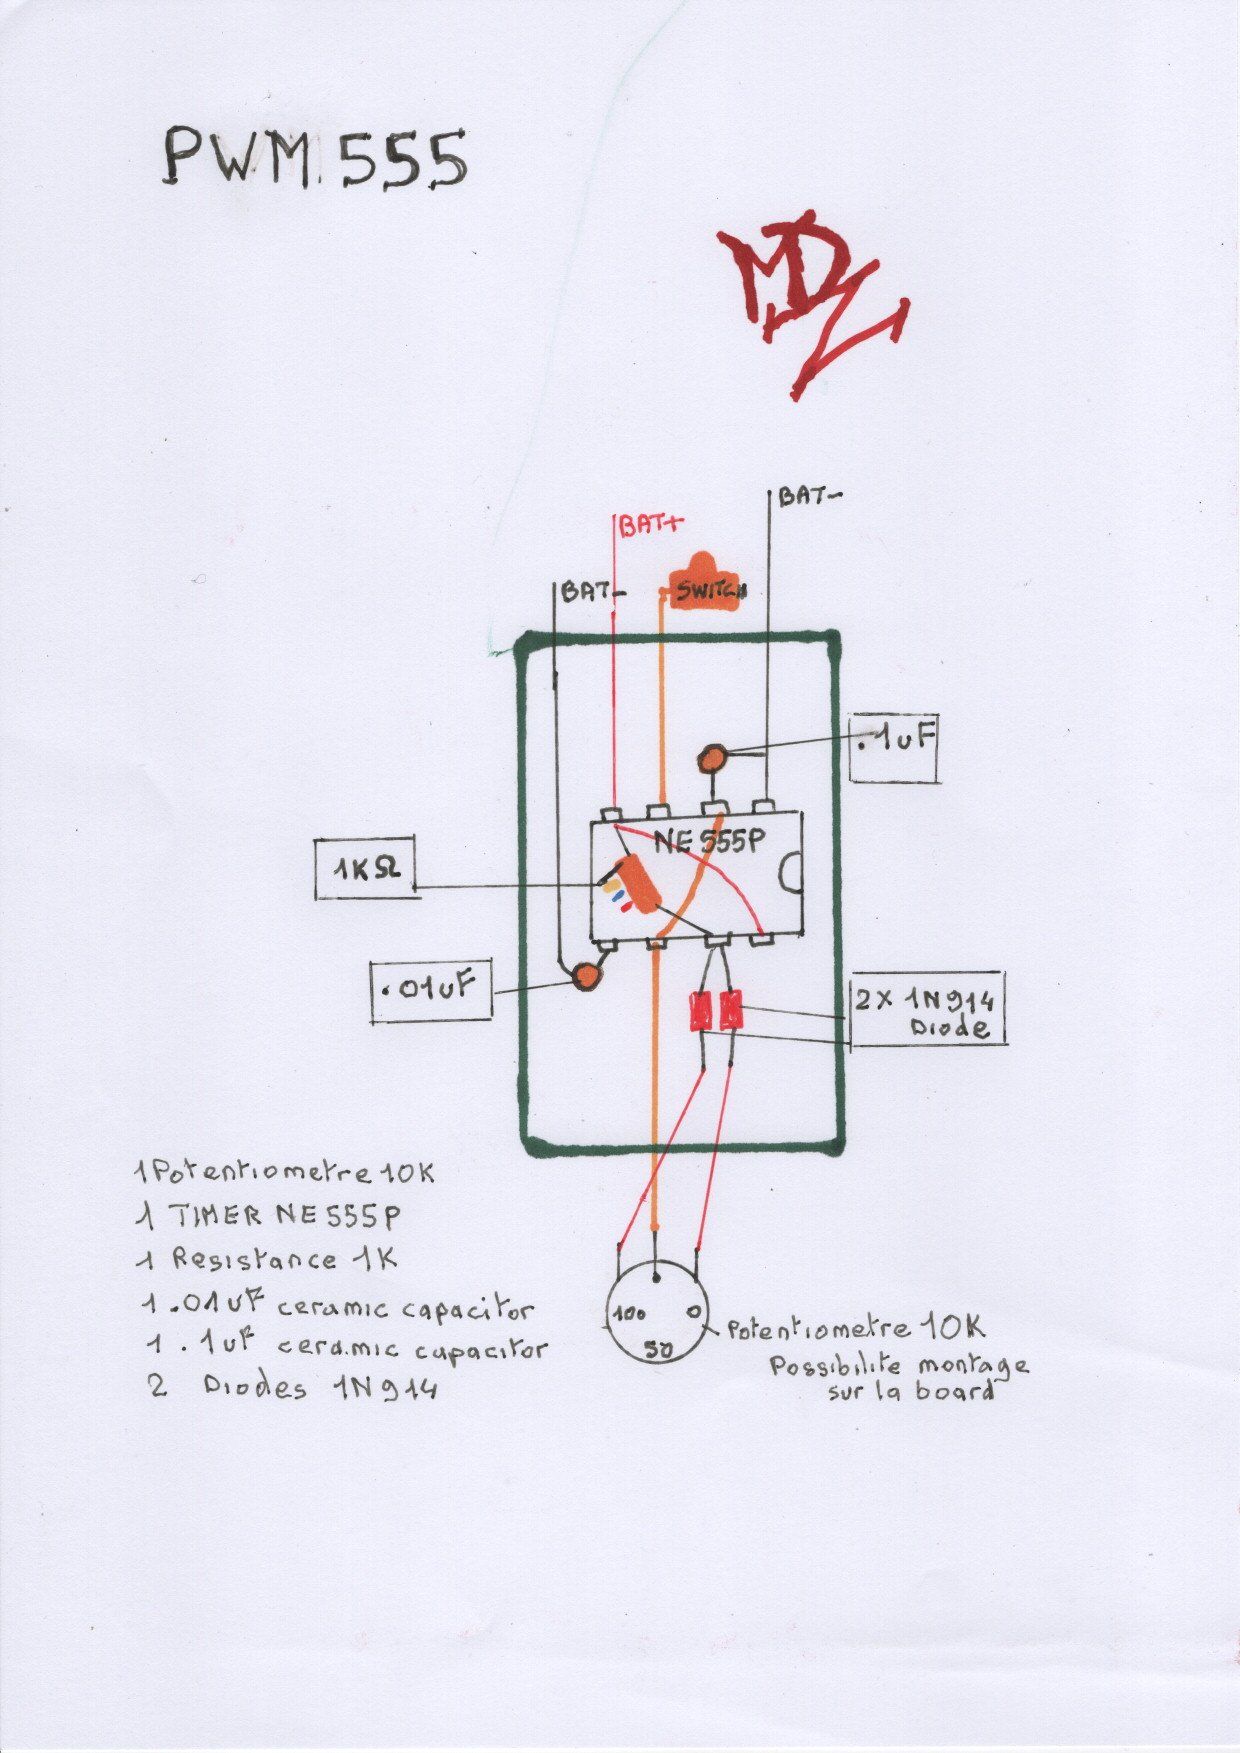 PWM 555
MDZ
BAT-
BAT+
BAT-
SWITCH
.1uF
NE 555P
1KΩ
.01uF
2x 1N914
Diode
1 Potentiometre 10K
1 TIMER NE 555P
1 Resistance 1K
1 .01uF ceramic capacitor
1 .1uF ceramic capacitor
2 Diodes 1N914
100
0
50
Potentiometre 10K
Possibilite montage
sur la board